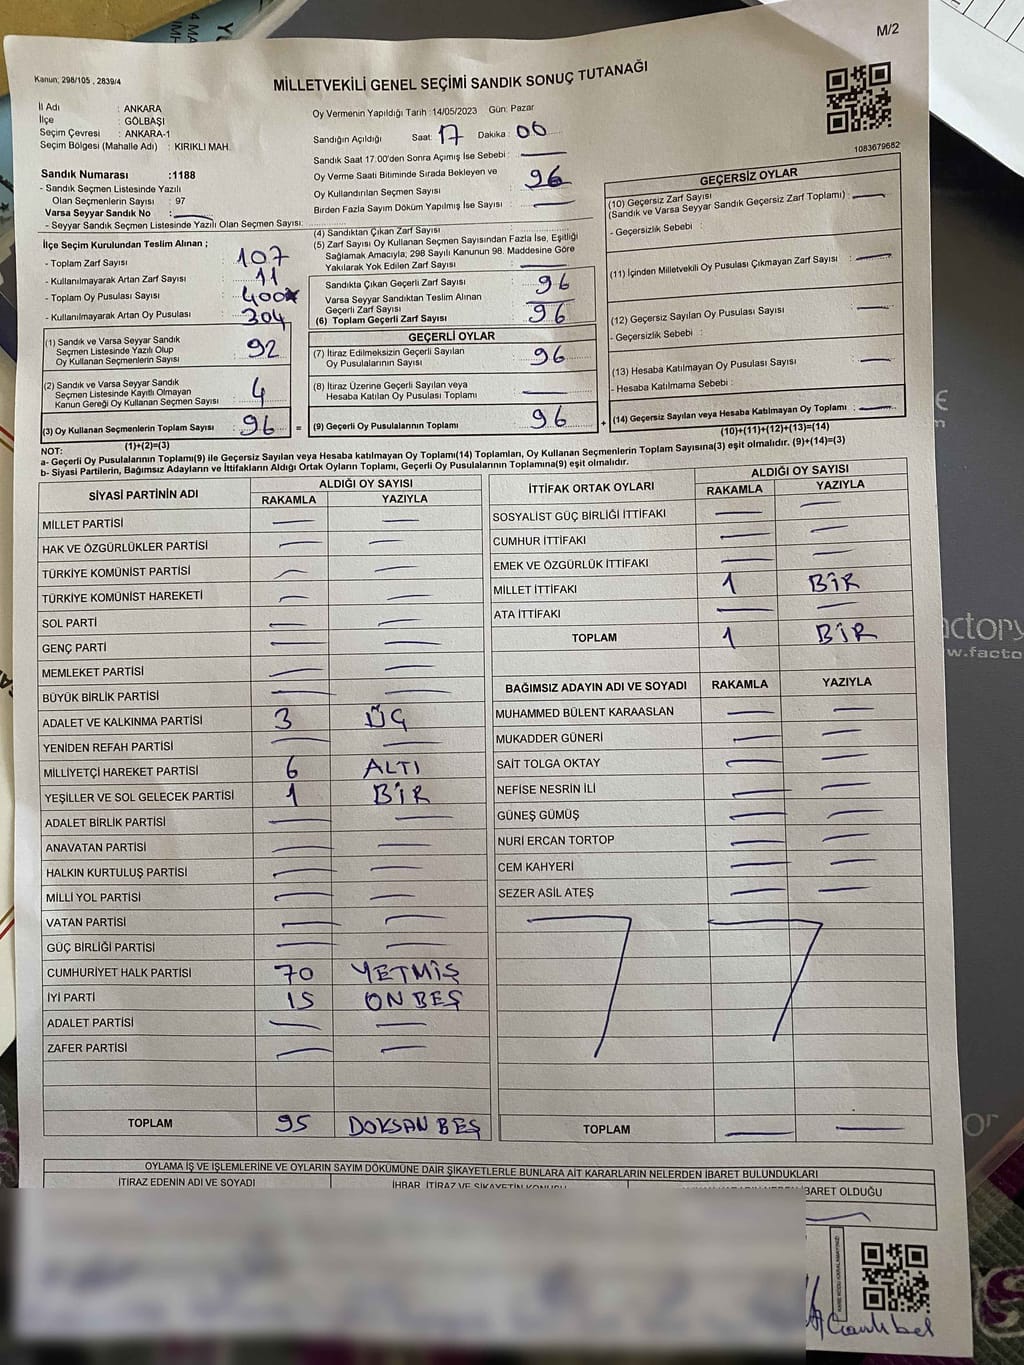 M/2
Kanun; 298/105 , 2839/4
MİLLETVEKİLİ GENEL SEÇİMİ SANDIK SONUÇ TUTANAĞI
İl Adı : ANKARA
İlçe : GÖLBAŞI
Seçim Çevresi : ANKARA-1
Seçim Bölgesi (Mahalle Adı) : KIRIKLI MAH.
Oy Vermenin Yapıldığı Tarih :14/05/2023 Gün: Pazar
Sandığın Açıldığı Saat: 17 Dakika : 06
Sandık Saat 17.00'den Sonra Açımış İse Sebebi : —
Oy Verme Saati Bitiminde Sırada Bekleyen ve
Oy Kullandırılan Seçmen Sayısı : 96
Birden Fazla Sayım Döküm Yapılmış İse Sayısı : —
1083679682
Sandık Numarası :1188
- Sandık Seçmen Listesinde Yazılı
Olan Seçmenlerin Sayısı : 97
Varsa Seyyar Sandık No : —
- Seyyar Sandık Seçmen Listesinde Yazılı Olan Seçmen Sayısı:
İlçe Seçim Kurulundan Teslim Alınan ;
- Toplam Zarf Sayısı : 107
- Kullanılmayarak Artan Zarf Sayısı : 11
- Toplam Oy Pusulası Sayısı : 400
- Kullanılmayarak Artan Oy Pusulası : 304
(1) Sandık ve Varsa Seyyar Sandık
Seçmen Listesinde Yazılı Olup
Oy Kullanan Seçmenlerin Sayısı : 92
(2) Sandık ve Varsa Seyyar Sandık
Seçmen Listesinde Kayıtlı Olmayan
Kanun Gereği Oy Kullanan Seçmen Sayısı : 4
(3) Oy Kullanan Seçmenlerin Toplam Sayısı : 96
(1)+(2)=(3)
(4) Sandıktan Çıkan Zarf Sayısı :
(5) Zarf Sayısı Oy Kullanan Seçmen Sayısından Fazla İse, Eşitliği
Sağlamak Amacıyla; 298 Sayılı Kanunun 98. Maddesine Göre
Yakılarak Yok Edilen Zarf Sayısı : —
Sandıkta Çıkan Geçerli Zarf Sayısı : 96
Varsa Seyyar Sandıktan Teslim Alınan
Geçerli Zarf Sayısı : —
(6) Toplam Geçerli Zarf Sayısı : 96
GEÇERLİ OYLAR
(7) İtiraz Edilmeksizin Geçerli Sayılan
Oy Pusulalarının Sayısı : 96
(8) İtiraz Üzerine Geçerli Sayılan veya
Hesaba Katılan Oy Pusulası Toplamı : —
= (9) Geçerli Oy Pusulalarının Toplamı : 96 +
GEÇERSİZ OYLAR
(10) Geçersiz Zarf Sayısı
(Sandık ve Varsa Seyyar Sandık Geçersiz Zarf Toplamı) : —
- Geçersizlik Sebebi :
(11) İçinden Milletvekili Oy Pusulası Çıkmayan Zarf Sayısı : —
(12) Geçersiz Sayılan Oy Pusulası Sayısı : —
- Geçersizlik Sebebi :
(13) Hesaba Katılmayan Oy Pusulası Sayısı : —
- Hesaba Katılmama Sebebi :
(14) Geçersiz Sayılan veya Hesaba Katılmayan Oy Toplamı : —
(10)+(11)+(12)+(13)=(14)
NOT:
a- Geçerli Oy Pusulalarının Toplamı(9) ile Geçersiz Sayılan veya Hesaba katılmayan Oy Toplamı(14) Toplamları, Oy Kullanan Seçmenlerin Toplam Sayısına(3) eşit olmalıdır. (9)+(14)=(3)
b- Siyasi Partilerin, Bağımsız Adayların ve İttifakların Aldığı Ortak Oyların Toplamı, Geçerli Oy Pusulalarının Toplamına(9) eşit olmalıdır.
SİYASİ PARTİNİN ADI ALDIĞI OY SAYISI
RAKAMLA YAZIYLA
MİLLET PARTİSİ — —
HAK VE ÖZGÜRLÜKLER PARTİSİ — —
TÜRKİYE KOMÜNİST PARTİSİ — —
TÜRKİYE KOMÜNİST HAREKETİ — —
SOL PARTİ — —
GENÇ PARTİ — —
MEMLEKET PARTİSİ — —
BÜYÜK BİRLİK PARTİSİ — —
ADALET VE KALKINMA PARTİSİ 3 ÜÇ
YENİDEN REFAH PARTİSİ — —
MİLLİYETÇİ HAREKET PARTİSİ 6 ALTI
YEŞİLLER VE SOL GELECEK PARTİSİ 1 BİR
ADALET BİRLİK PARTİSİ — —
ANAVATAN PARTİSİ — —
HALKIN KURTULUŞ PARTİSİ — —
MİLLİ YOL PARTİSİ — —
VATAN PARTİSİ — —
GÜÇ BİRLİĞİ PARTİSİ — —
CUMHURİYET HALK PARTİSİ 70 YETMİŞ
İYİ PARTİ 15 ON BEŞ
ADALET PARTİSİ — —
ZAFER PARTİSİ — —
TOPLAM 95 DOKSAN BEŞ
İTTİFAK ORTAK OYLARI ALDIĞI OY SAYISI
RAKAMLA YAZIYLA
SOSYALİST GÜÇ BİRLİĞİ İTTİFAKI — —
CUMHUR İTTİFAKI — —
EMEK VE ÖZGÜRLÜK İTTİFAKI — —
MİLLET İTTİFAKI 1 BİR
ATA İTTİFAKI — —
TOPLAM 1 BİR
BAĞIMSIZ ADAYIN ADI VE SOYADI RAKAMLA YAZIYLA
MUHAMMED BÜLENT KARAASLAN — —
MUKADDER GÜNERİ — —
SAİT TOLGA OKTAY — —
NEFİSE NESRİN İLİ — —
GÜNEŞ GÜMÜŞ — —
NURİ ERCAN TORTOP — —
CEM KAHYERİ — —
SEZER ASİL ATEŞ — —
TOPLAM — —
OYLAMA İŞ VE İŞLEMLERİNE VE OYLARIN SAYIM DÖKÜMÜNE DAİR ŞİKAYETLERLE BUNLARA AİT KARARLARIN NELERDEN İBARET BULUNDUKLARI
İTİRAZ EDENİN ADI VE SOYADI İHBAR, İTİRAZ VE ŞİKAYETİN KONUSU İBARET OLDUĞU
actory
w.facto